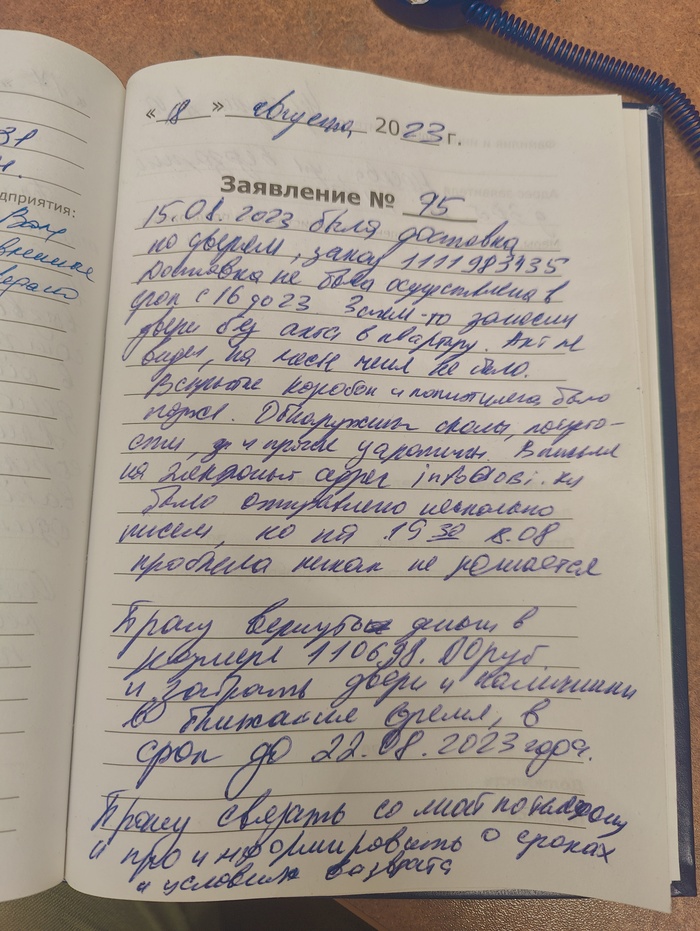 31
н.
дприятия:
« 18 » августа 2023 г.
Заявление № 95
15.08.2023 была доставка
по дверям, заказ 1111983435
Доставка не была осуществлена в
срок с 16 до 23 Зачем-то заносили
двери без акта в квартиру. Акт не
видел, на части меня не было.
Вскрытие коробок и было
позже. Обнаружили сколы,
сти, и прям царапины.
на электронный адрес info@obi.ru
было отправлено несколько
писем, но на 19 30 18.08
проблема никак не решается
Прошу вернуть деньги в
размере 110698.00 руб
и забрать двери и наличники
в ближайшее время, в
срок до 22.08.2023 года.
Прошу связать со мной по телефону
и проинформировать о сроках
и условиях возврата